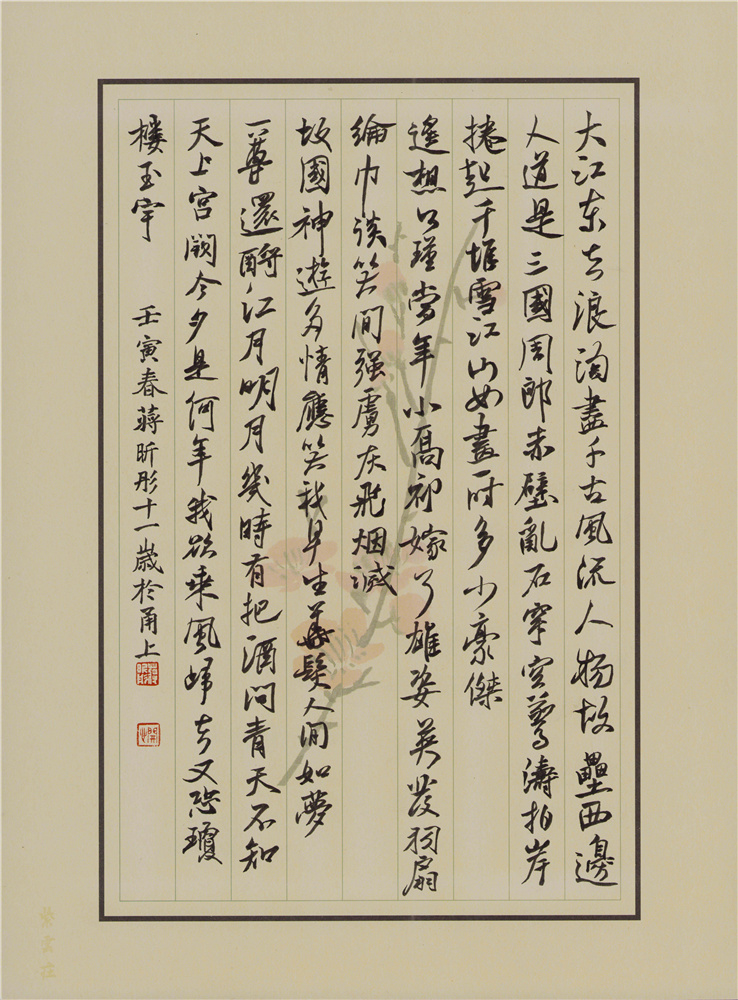 大江东去浪淘盡千古風流人物故壘西邊
人道是三國周郎赤壁亂石穿空驚濤拍岸
捲起千堆雪江山如畫一时多少豪傑
遙想公瑾當年小喬初嫁了雄姿英發羽扇
綸巾談笑間强虜灰飛烟滅
故國神遊多情應笑我早生華髮人間如夢
一尊還酹江月明月幾時有把酒問青天不知
天上宫闕今夕是何年我欲乘風歸去又恐瓊
樓玉宇 壬寅春蔣昕彤十一歲於甬上